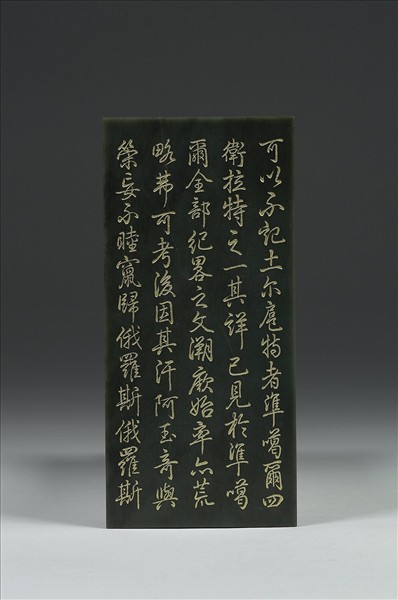 可以不記土尔扈特者準噶爾四
衛拉特之一其詳已見於準噶
爾全部紀畧之文溯厥始率亦荒
略弗可考後因其汗阿玉奇與
策妄不睦竄歸俄羅斯俄羅斯